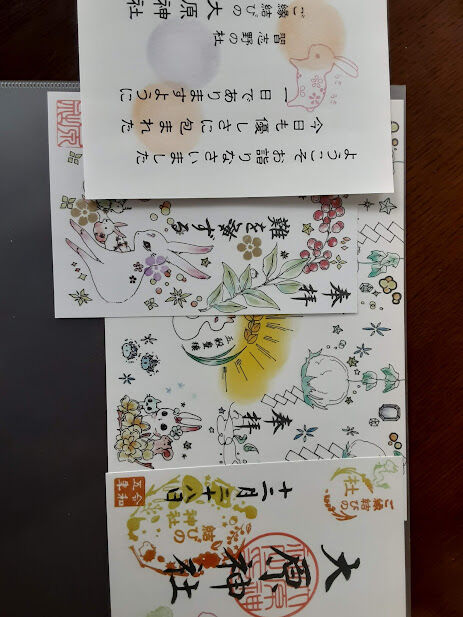 ようこそお詣りなさいました
今日も優しさに包まれた
一日でありますように
習志野の社
ご縁結びの大原神社
奉拝
難を転ずる
奉拝
五穀豊穣
ご縁結びの社
大原神社
結びの神社
十二月二十八日
令和五年